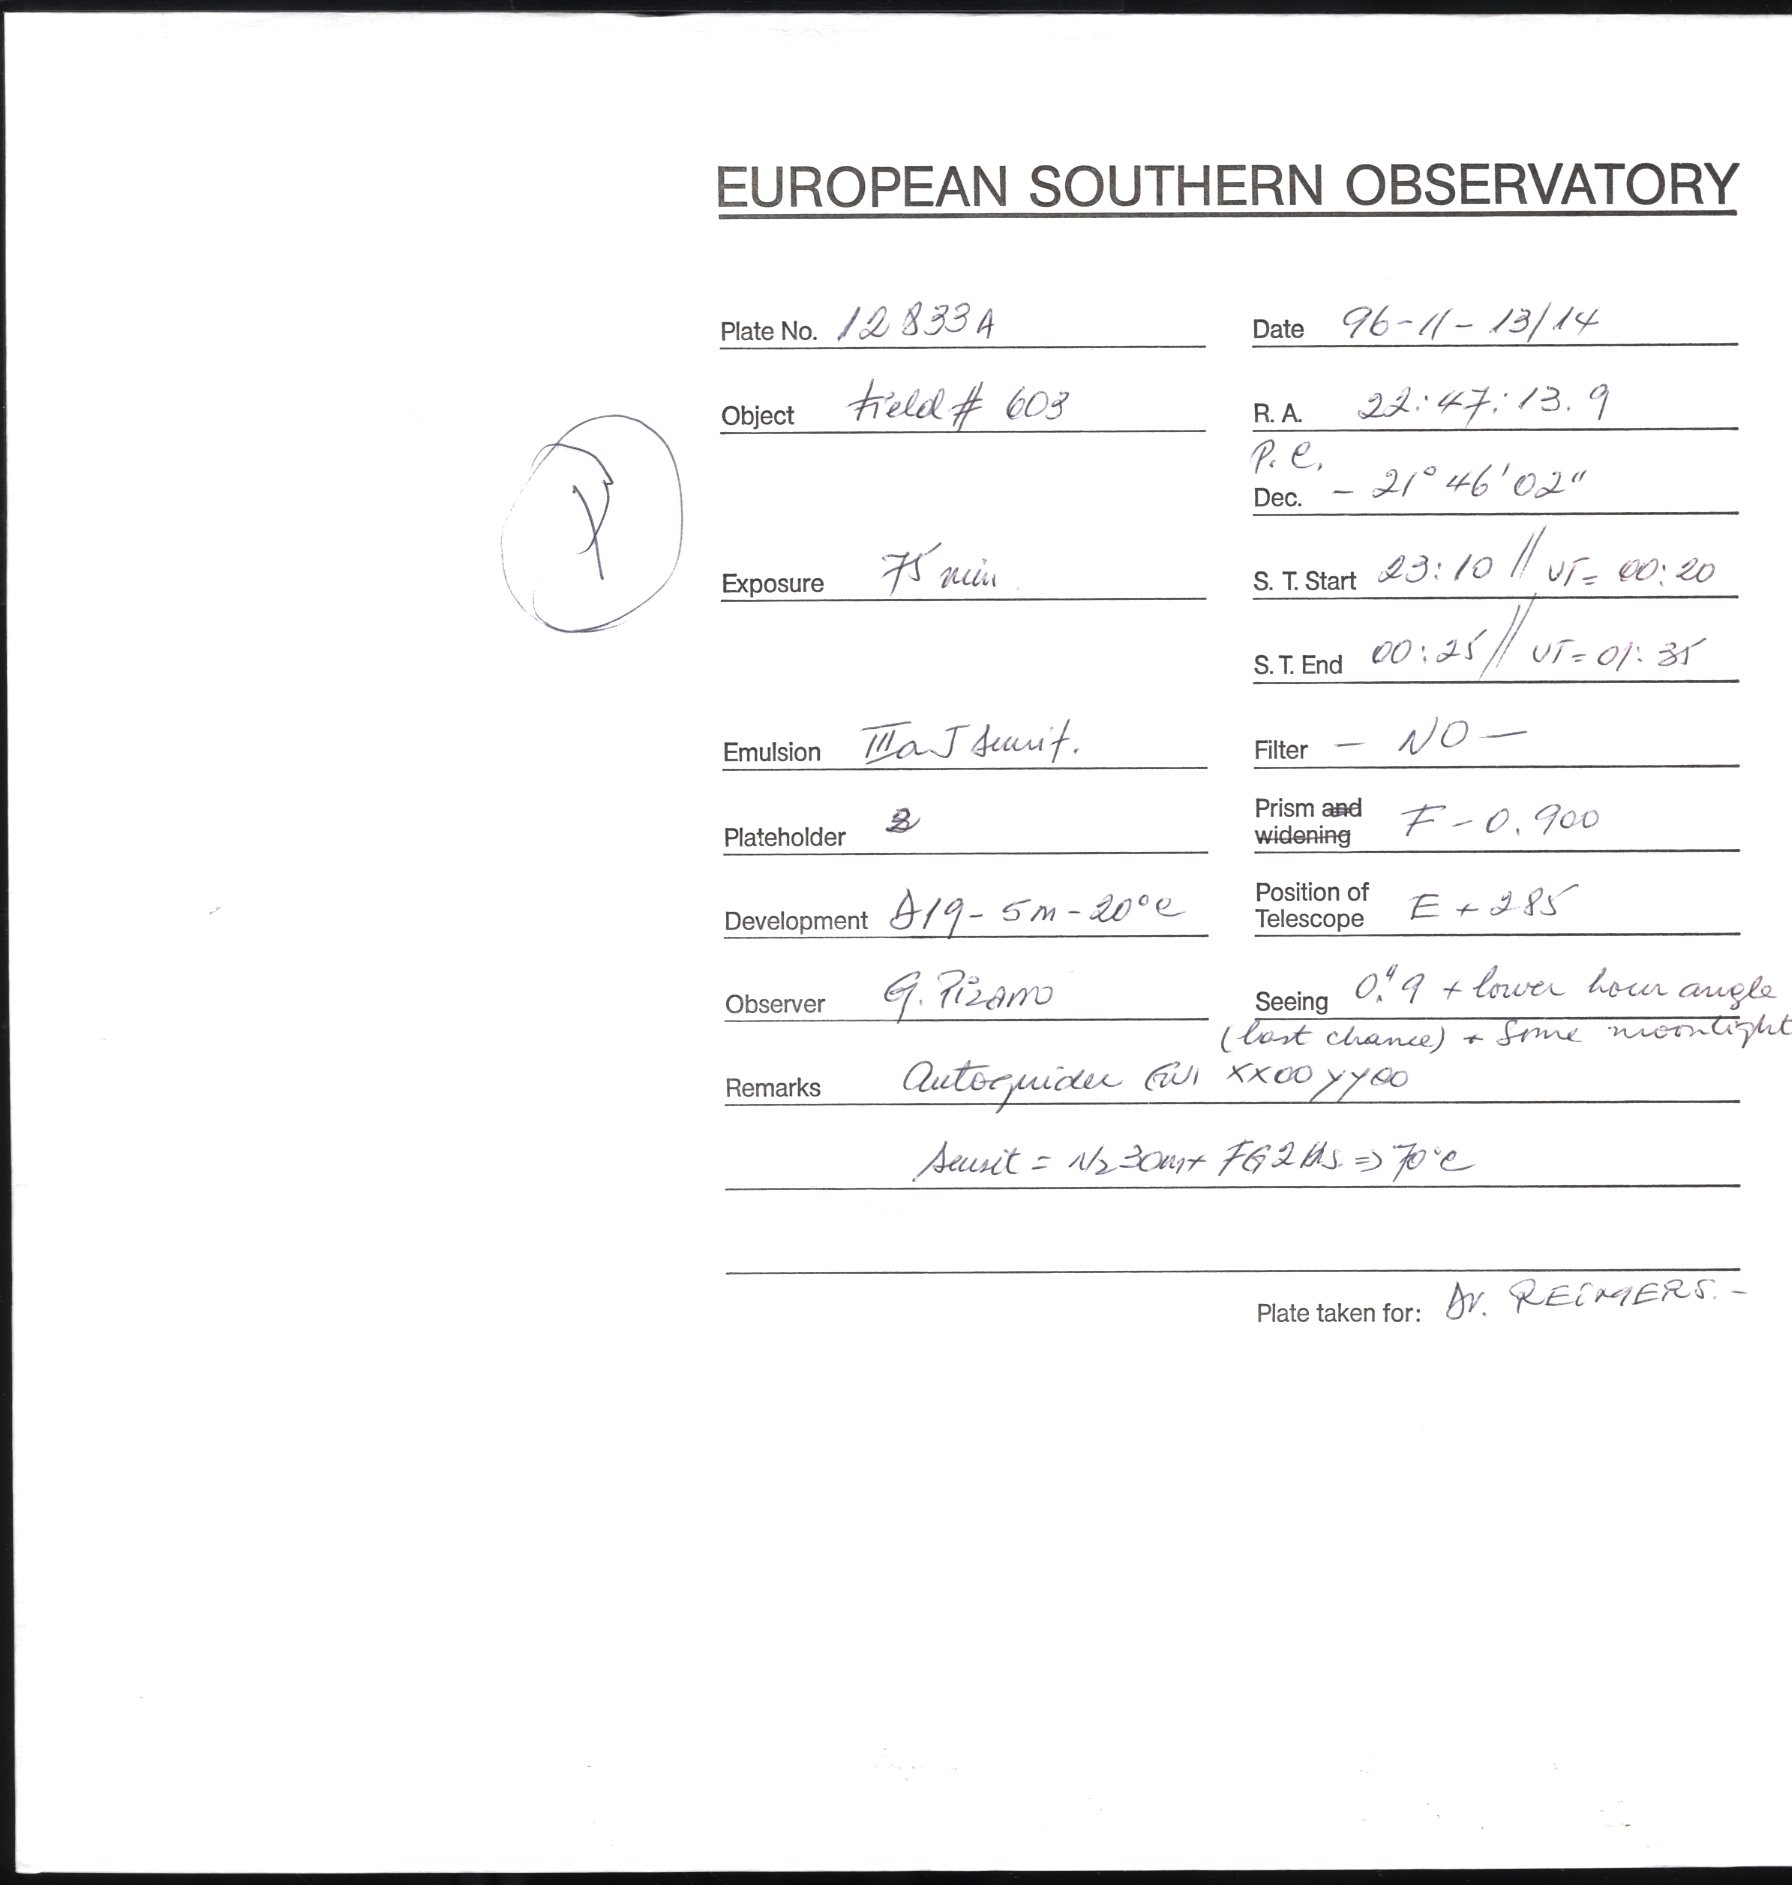 EUROPEAN SOUTHERN OBSERVATORY
Plate No. 12833A Date 96-11-13/14
Object Field # 603 R. A. 22:47:13.9
P. C.
Dec. - 21° 46' 02"
Exposure 75 min. S. T. Start 23:10 // UT= 00:20
S. T. End 00:25 // UT= 01:35
Emulsion IIIaJ sensit. Filter - NO -
Plateholder Prism and widening F - 0.900
Development D19 - 5m - 20°C Position of Telescope E + 285
Observer G. Pizarro Seeing 0."9 + lower hour angle
(last chance) + Some moonlight
Remarks Autoguider XX00 YY00
Sensit = N2 30m + FG 2 hs. => 70°C
Plate taken for: Dr. REIMERS. -